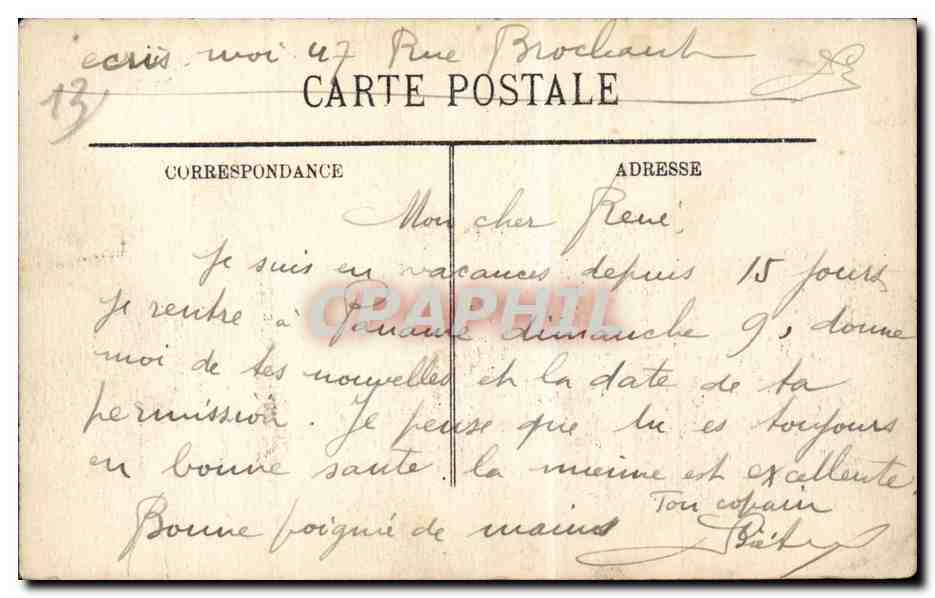 ecris moi 47 Rue Brochant
13
CARTE POSTALE
CORRESPONDANCE
ADRESSE
Mon cher René,
Je suis en vacances depuis 15 jours
Je rentre à Paname dimanche 9, donne
moi de tes nouvelles et la date de ta
permission. Je pense que tu es toujours
en bonne sante la mienne est excellente.
Bonne poignié de mains
Ton copain
CPAPHIL